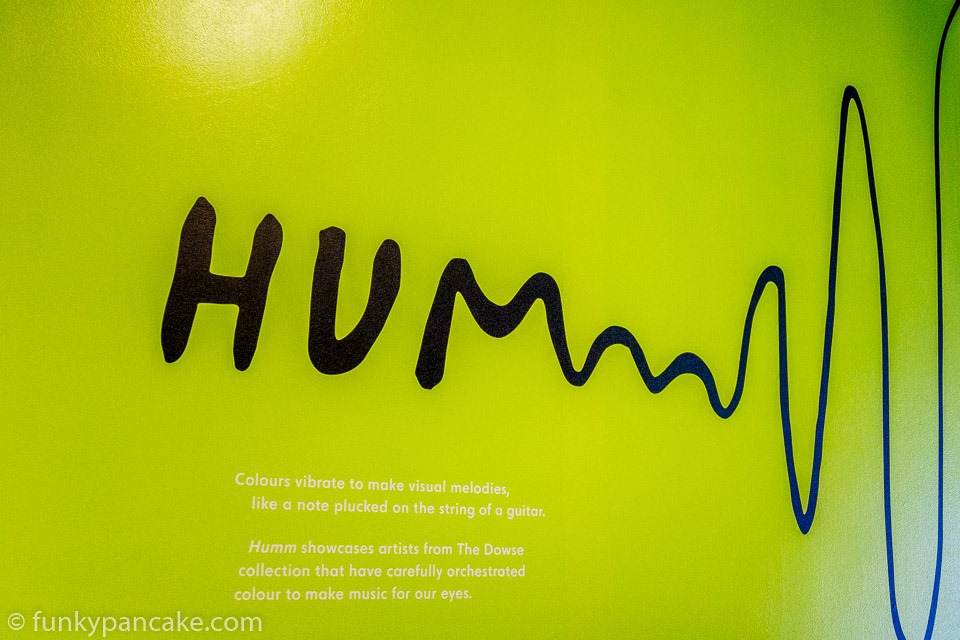 HUMM
Colours vibrate to make visual melodies,
like a note plucked on the string of a guitar.
Humm showcases artists from The Dowse
collection that have carefully orchestrated
colour to make music for our eyes.
© funkypancake.com